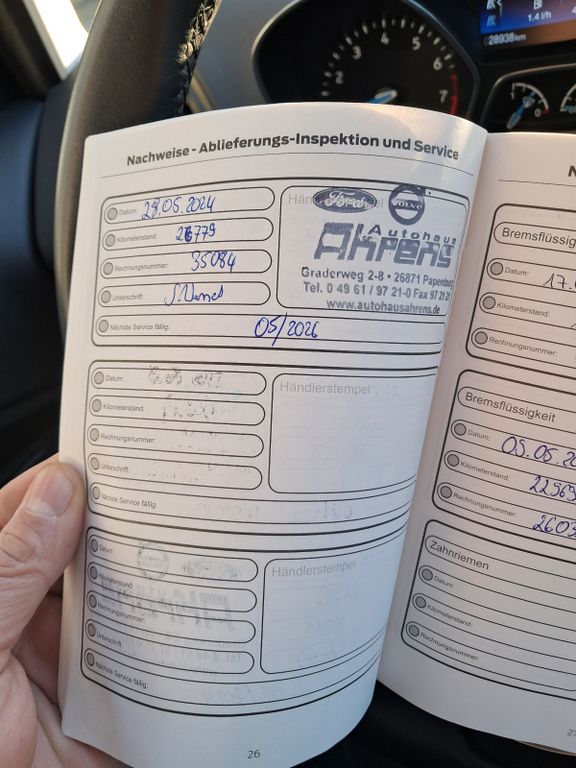 1.4 l/h
28938km
2
3
4
5
6
7
Nachweise - Ablieferungs-Inspektion und Service
Datum: 29.05.2024
Kilometerstand: 26779
Rechnungsnummer: 35084
Unterschrift:
Nächste Service fällig: 05/2026
Ford VOLVO
Autohaus
Ahrens
Graderweg 2-8 • 26871 Papenburg
Tel. 0 49 61 / 97 21-0 Fax 97 21 21
www.autohausahrens.de
Datum:
Kilometerstand:
Rechnungsnummer:
Unterschrift:
Nächste Service fällig:
Händlerstempel
Datum:
Kilometerstand:
Rechnungsnummer:
Unterschrift:
Nächste Service fällig:
Händlerstempel
26
Bremsflüssig
Datum: 17.
Kilometerstand:
Rechnungsnumme
Bremsflüssigkeit
Datum: 09.05.20
Kilometerstand: 22969
Rechnungsnummer: 2603
Zahnriemen
Datum:
Kilometerstand:
Rechnungsnummer:
27